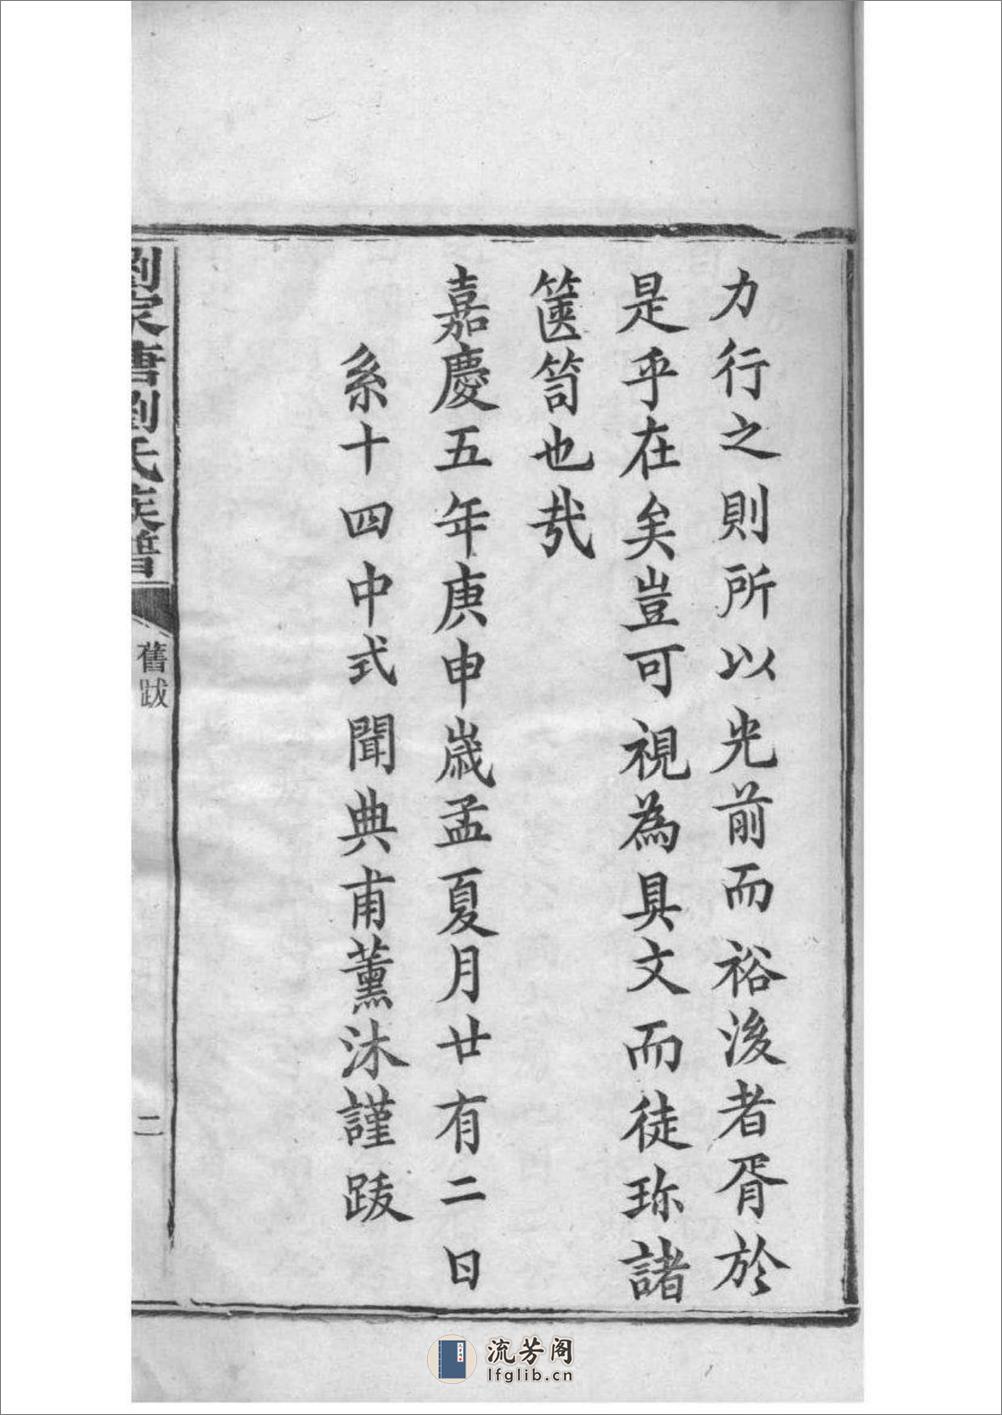 力行之則所以光前而裕後者胥於
是乎在矣豈可視為具文而徒珎諸
篋笥也哉
嘉慶五年庚申歲孟夏月廿有二日
系十四中式聞典甫薰沐謹跋
劉家唐劉氏族譜
舊跋
二
流芳阁
lfglib.cn